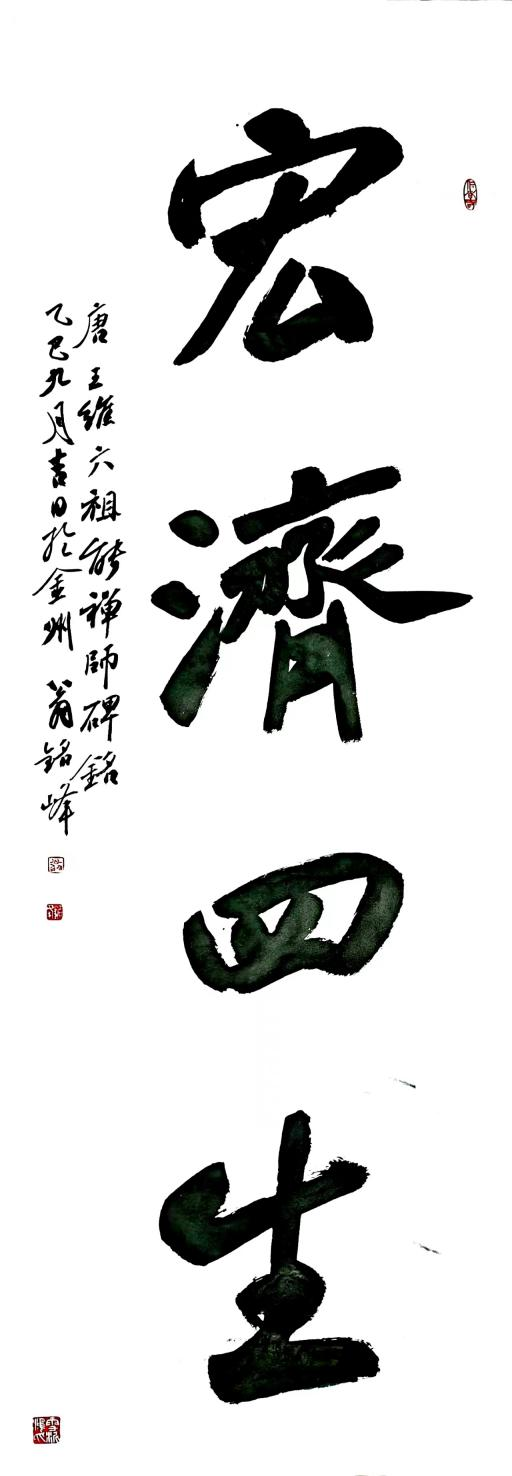 宏濟四生
唐王維六祖能禪師碑銘
乙巳九月吉日於金州 翁銘峰